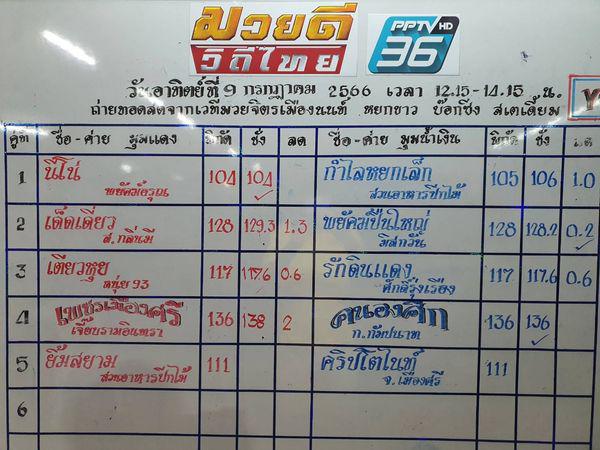 มวยดี
วิถีไทย
PPTV HD
36
วันอาทิตย์ที่ 9 กรกฎาคม 2566 เวลา 12.15-14.15 น.
ถ่ายทอดสดจากเวทีมวยจิตรเมืองนนท์ หยกขาว บ๊อกซิ่ง สเตเดี้ยม
คู่ที่ ชื่อ-ค่าย มุมแดง พิกัด ชั่ง ลด ชื่อ-ค่าย มุมน้ำเงิน พิกัด ชั่ง ลด
1 นีโน่ 104 104 กำไลหยกเล็ก 105 106 1.0
พยัคฆ์อรุณ สวนอาหารปีกไม้
2 เด็ดเดี่ยว 128 129.3 1.3 พยัคฆ์ปืนใหญ่ 128 128.2 0.2
ส.กลิ่นมี มิสกวัน
3 เตียวหุย 117 117.6 0.6 รักดินแดง 117 117.6 0.6
หนุ่ย 93 ศักดิ์รุ่งเรือง
4 เพชรเมืองศรี 136 138 2 คนองศึก 136 136
เจี๊ยบรามอินทรา ก.กัมปนาท
5 ยิ้มสยาม 111 คริปโตไนท์ 111
สวนอาหารปีกไม้ จ.เมืองศรี
6